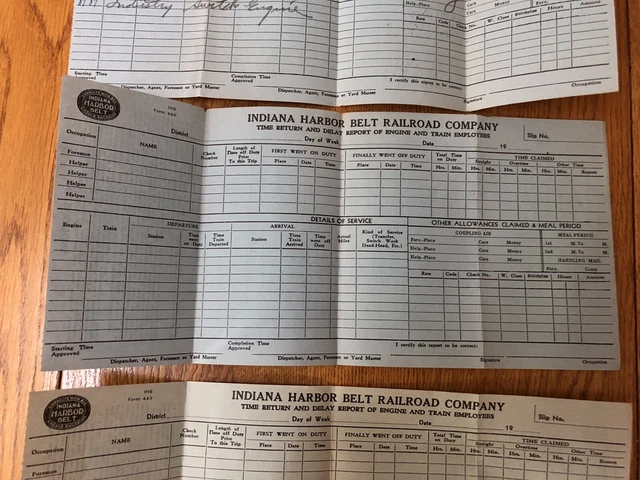 Industry Switch Engine
Cars Money
Help.-Place Cars Money
Rate Code Check No. W. Class Hours Amount
Starting Time Approved
Completion Time Approved
Dispatcher, Agent, Foreman or Yard Master
Dispatcher, Agent, Foreman or Yard Master
I certify this report to be correct:
Signature
Occupation
INDIANA HARBOR BELT
IHB
Form 449
District
INDIANA HARBOR BELT RAILROAD COMPANY
TIME RETURN AND DELAY REPORT OF ENGINE AND TRAIN EMPLOYEES
Day of Week Date 19
Slip No.
Occupation NAME
Check Number
Length of Time off Duty Prior To this Trip
FIRST WENT ON DUTY
FINALLY WENT OFF DUTY
Total Time on Duty
TIME CLAIMED
Straight Overtime Other Time
Place Date Time Place Date Time Hrs. Min. Hrs. Min. Hrs. Min. Hrs. Min. Reason
Foreman
Helper
Helper
Helper
Helper
DETAILS OF SERVICE
OTHER ALLOWANCES CLAIMED & MEAL PERIOD
Engine Train
DEPARTURE
Station Time Train Departed
ARRIVAL
Station Time Train Arrived Time went off Duty
Actual Miles
Kind of Service (Transfer, Switch Work Dead-Head, Etc.)
COUPLING AIR
MEAL PERIOD
Fore.-Place Cars Money 1st M. To M.
Help.-Place Cars Money 2nd M. To M.
Help.-Place Cars Money HANDLING MAIL
Fore. Cons.
Rate Code Check No. W. Class Hours Amount
Starting Time Approved
Completion Time Approved
Dispatcher, Agent, Foreman or Yard Master
Dispatcher, Agent, Foreman or Yard Master
I certify this report to be correct:
Signature
Occupation
INDIANA HARBOR BELT
IHB
Form 449
District
INDIANA HARBOR BELT RAILROAD COMPANY
TIME RETURN AND DELAY REPORT OF ENGINE AND TRAIN EMPLOYEES
Day of Week Date 19
Slip No.
Occupation NAME
Check Number
Length of Time off Duty Prior To this Trip
FIRST WENT ON DUTY
FINALLY WENT OFF DUTY
Total Time on Duty
TIME CLAIMED
Straight Overtime Other Time
Place Date Time Place Date Time Hrs. Min. Hrs. Min. Hrs. Min. Hrs. Min. Reason
Foreman